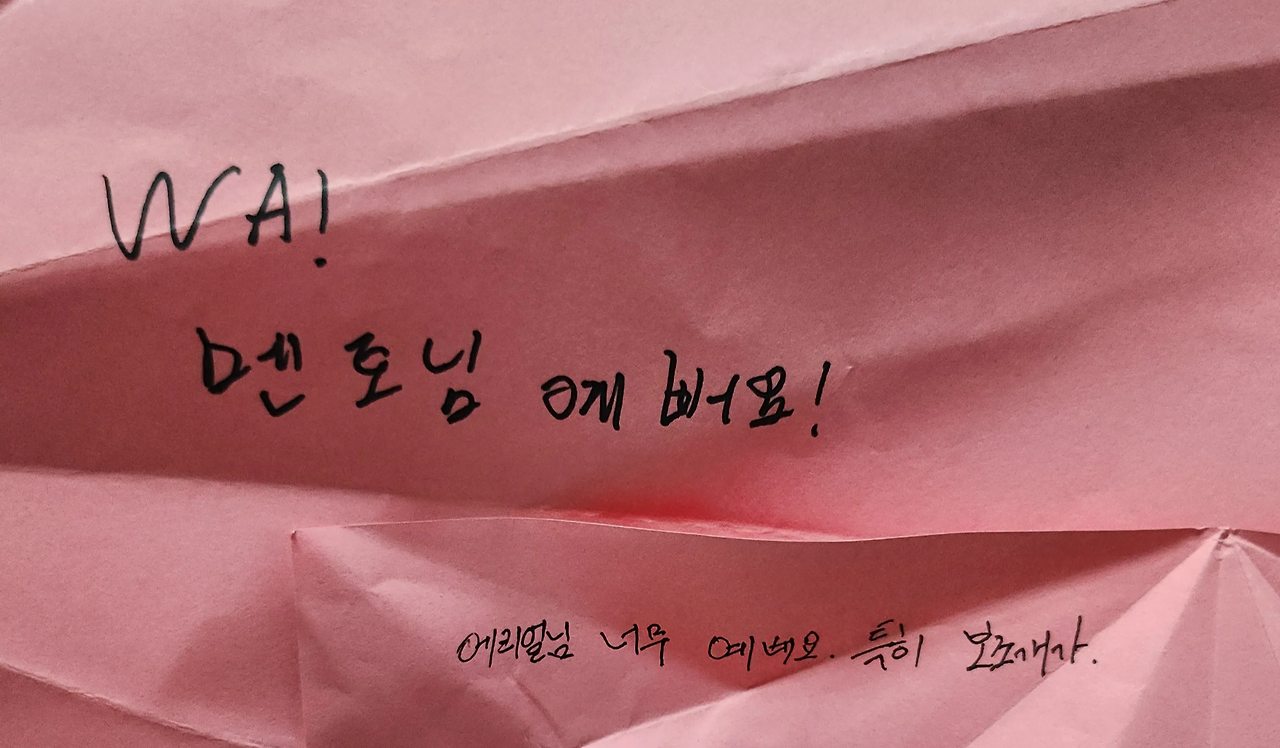 WA!
멘토님 예뻐요!
에리얼님 너무 예뻬요. 특히 보조개가.